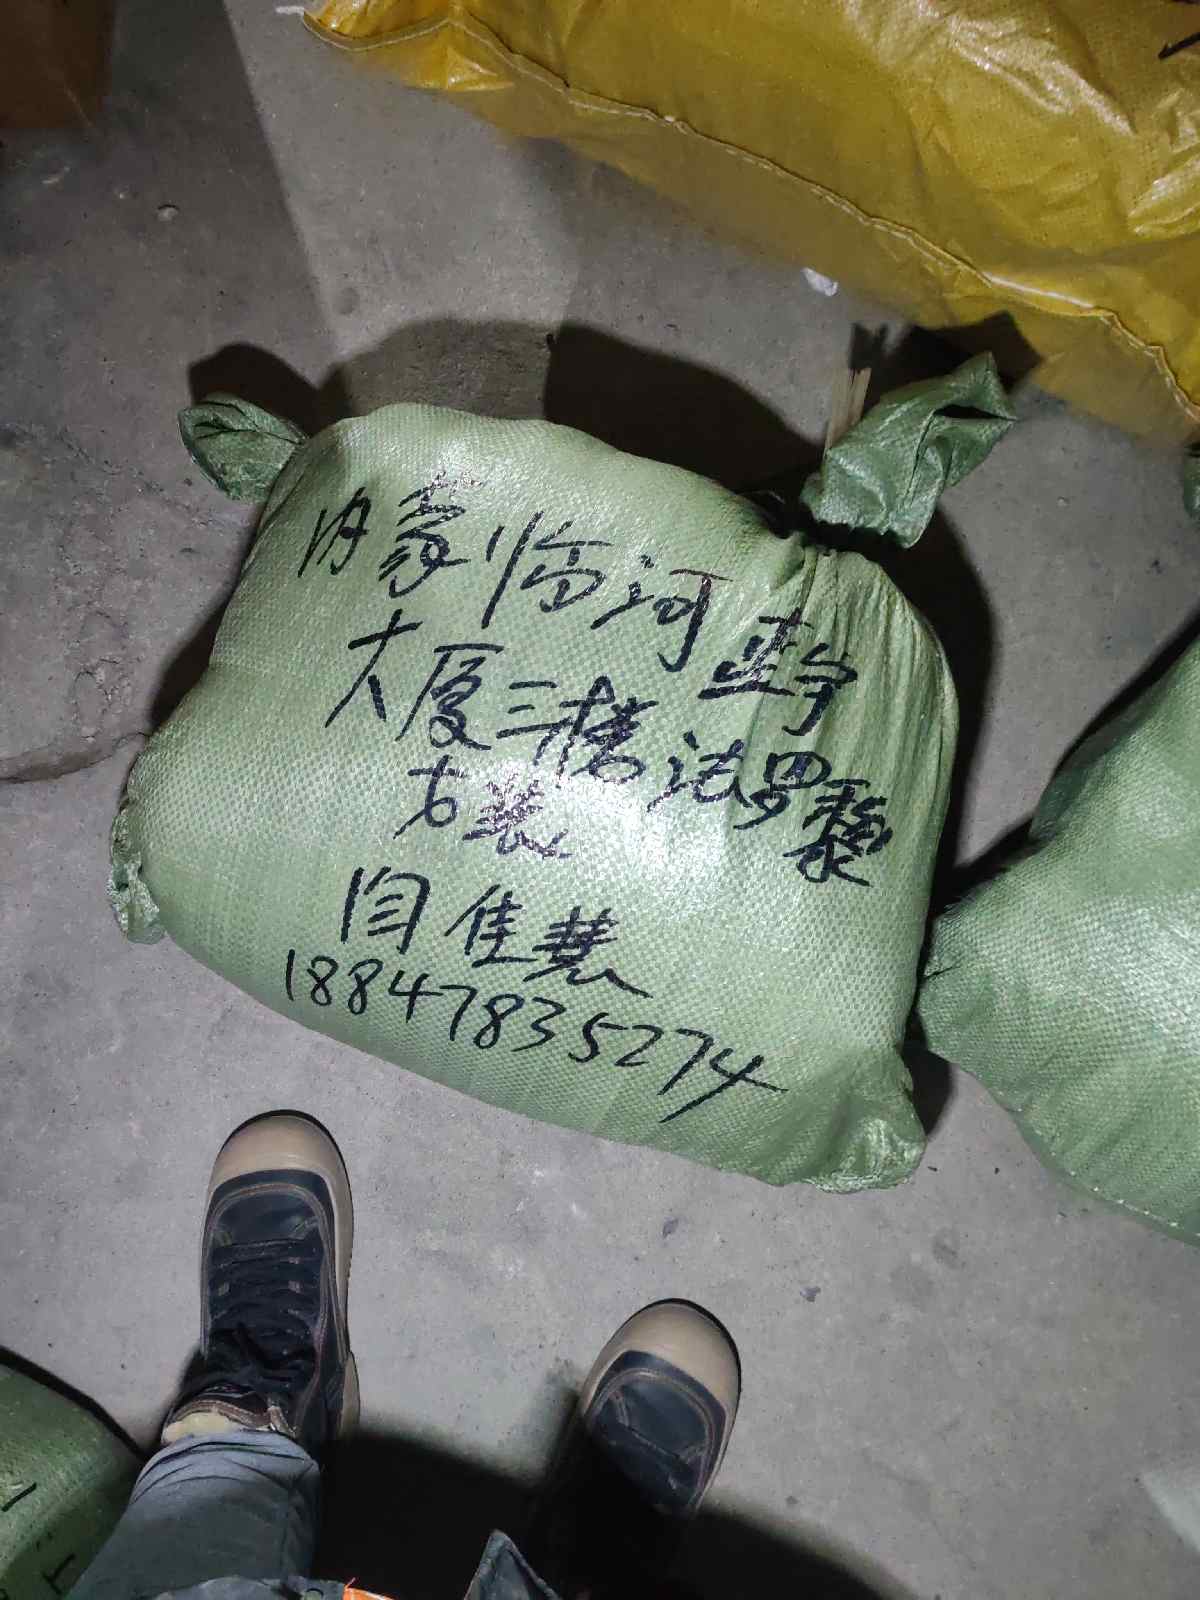 内蒙临河蓝宁
大厦三楼法罗黎
女装
闫佳慧
18847835274